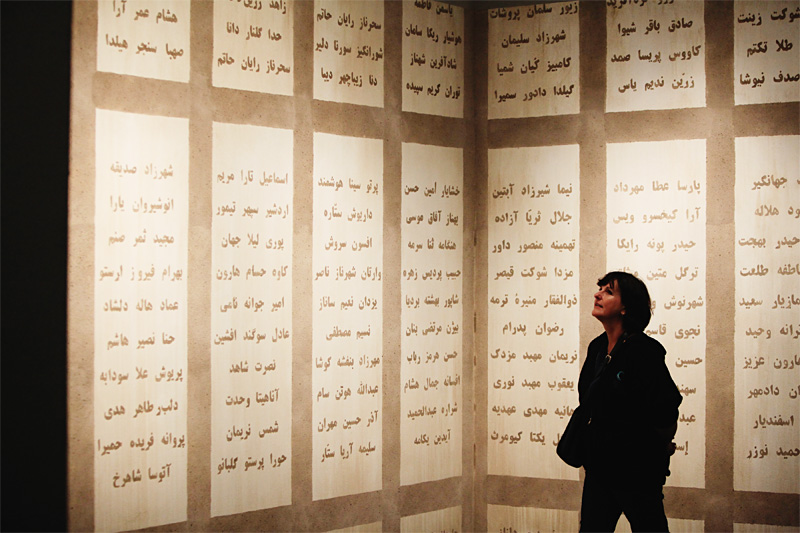 شوکت زینت
طلا تکتم
صدف نیوشا
صادق باقر شیوا
کاووس پریسا صمد
زرّین ندیم یاس
زیور سلمان پروشات
شهرزاد سلیمان
کامبیز کیان شمیا
گیلدا دادور سمیرا
یاسمن فاطمه
هوشیار ریکا سامان
شادآفرین شهناز
توران کریم سپیده
سحرناز رایان حاتم
شورانگیز سورنا دلیر
دنا زیباچهر دیبا
زاهد
گلنار دانا
سحرناز رایان حاتم
هشام عمر آرا
صهبا سنجر هیلدا
جهانگیر
هلاله
حیدر بهجت
عاطفه طلعت
مازیار سعید
وحید
هارون عزیز
دادمهر
اسفندیار
حمید نوزر
پارسا عطا مهرداد
آرا کیخسرو ویس
حیدر پونه رایکا
ترگل متین
شهرنوش
نجوی قاسم
حسین
نیما شیرزاد آبتین
جلال ثریّا آزاده
تهمینه منصور داور
مزدا شوکت قیصر
ذوالفقار منیژه ترمه
رضوان پدرام
نریمان مهبد مزدک
یعقوب مهبد نوری
هانیه مهدی عهدیه
یکتا کیومرث
خشایار امین حسن
بهناز آفاق موسی
هنگامه ثنا سرمه
حبیب پردیس زهره
شاپور بهشته بردیا
بیژن مرتضی بنان
حسن هرمز رباب
افسانه جمال هشام
شراره عبدالحمید
آیدین یکامه
پرتو سینا هوشمند
داریوش ستّاره
افسون سروش
وارتان شهرناز ناصر
یزدان نعیم ساناز
نسیم مصطفی
مهرزاد بنفشه کوشا
عبدالله هوتن سام
آذر حسین مهران
سلیمه آریا ستّار
اسماعیل تارا مریم
اردشیر سپهر تیمور
پوری لیلا جهان
کاوه حسام هارون
امیر جوانه نامی
عادل سوگند افشین
نصرت شاهد
آناهیتا وحدت
شمس نریمان
حورا پرستو گلبانو
شهرزاد صدیقه
انوشیروان یارا
مجید ثمر صنم
بهرام فیروز ارسطو
عماد هاله دلشاد
حنا نصیر هاشم
پریوش علا سودابه
دلبر طاهر هدی
پروانه فریده حمیرا
آتوسا شاهرخ